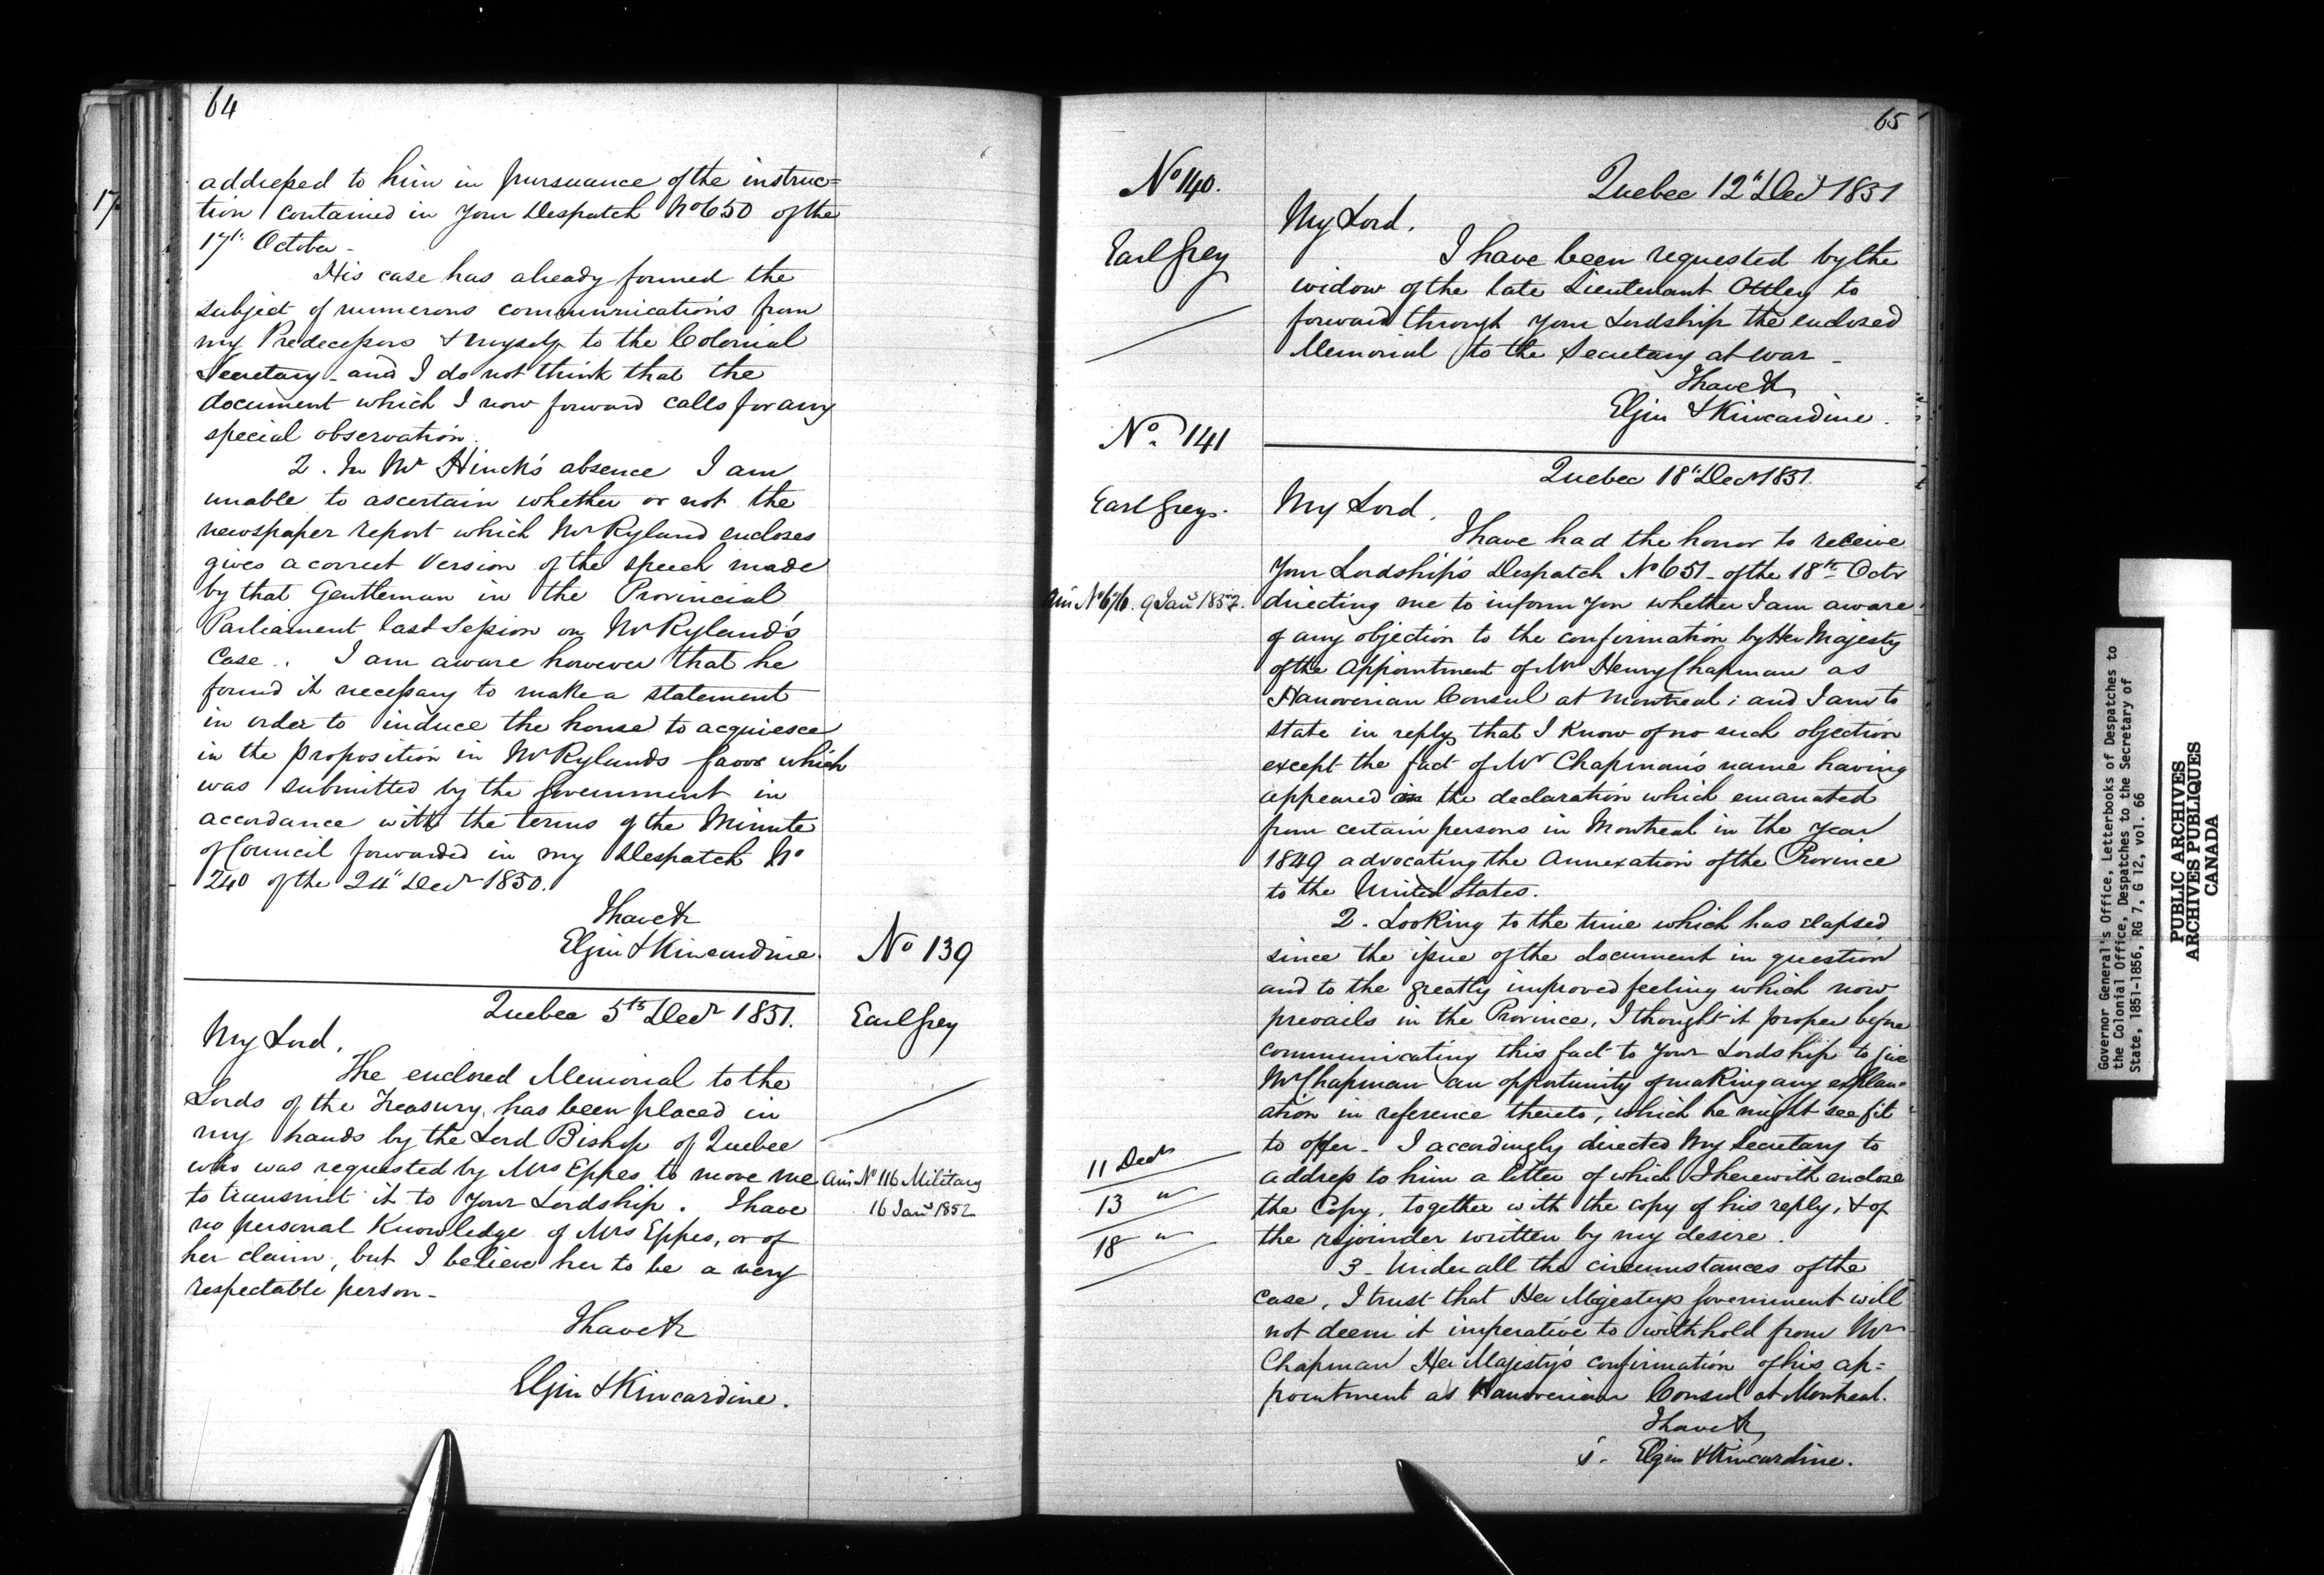 64
addressed to him in pursuance of the instruc=
tion contained in your Despatch No 650 of the
17th October -
His case has already formed the
subject of numerous communications from
my Predecessors & myself to the Colonial
Secretary - and I do not think that the
document which I now forward calls for any
special observation.
2. In Mr Hinck's absence I am
unable to ascertain whether or not the
newspaper report which Mr Ryland encloses
gives a correct Version of the speech made
by that Gentleman in the Provincial
Parliament last Session on Mr Ryland's
Case. I am aware however that he
found it necessary to make a statement
in order to induce the house to acquiesce
in the proposition in Mr Rylands favor which
was submitted by the Government in
accordance with the terms of the Minute
of Council forwarded in my Despatch No
240 of the 24th Decr 1850.
I have &c
Elgin & Kincardine.
No 139
Earl Grey
Quebec 5th Decr 1851.
My Lord,
The enclosed Memorial to the
Lords of the Treasury, has been placed in
my hands by the Lord Bishop of Quebec
who was requested by Mrs Eppes to move me
to transmit it to Your Lordship. I have
no personal Knowledge of Mrs Eppes, or of
her claim, but I believe her to be a very
respectable person -
I have &c
Elgin & Kincardine.
Ans No 116 Military
16 Jany 1852
17
65
No 140.
Earl Grey
Quebec 12th Decr 1851
My Lord.
I have been requested by the
widow of the late Lieutenant Ottley to
forward through your Lordship the enclosed
Memorial to the Secretary at War -
I have &c
Elgin & Kincardine.
No. 141
Earl Grey.
Quebec 18th Decr 1851.
My Lord.
I have had the honor to receive
Your Lordship's Despatch No 651 - of the 18th Octr
directing me to inform you whether I am aware
of any objection to the confirmation by Her Majesty
of the Appointment of Mr Henry Chapman as
Hanoverian Consul at Montreal; and I am to
state in reply that I know of no such objection
except the fact of Mr Chapman's name having
appeared in the declaration which emanated
from certain persons in Montreal in the year
1849 advocating the Annexation of the Province
to the United States.
2. Looking to the time which has elapsed
since the issue of the document in question
and to the greatly improved feeling which now
prevails in the Province, I thought it proper before
communicating this fact to Your Lordship to give
Mr Chapman an opportunity of making any explan=
ation in reference thereto, which he might see fit
to offer - I accordingly directed My Secretary to
address to him a letter of which I herewith enclose
the Copy, together with the copy of his reply, & of
the rejoinder written by my desire.
3 - Under all the circumstances of the
case, I trust that Her Majesty's Government will
not deem it imperative to withhold from Mr
Chapman Her Majesty's confirmation of his ap=
pointment as Hanoverian Consul at Montreal.
I have &c
s. Elgin & Kincardine.
9 Jany 1852.
11 Decr
13 "
18 "
Governor General's Office, Letterbooks of Despatches to
the Colonial Office, Despatches to the Secretary of
State, 1851-1856, RG 7, G 12, vol. 66
PUBLIC ARCHIVES
ARCHIVES PUBLIQUES
CANADA